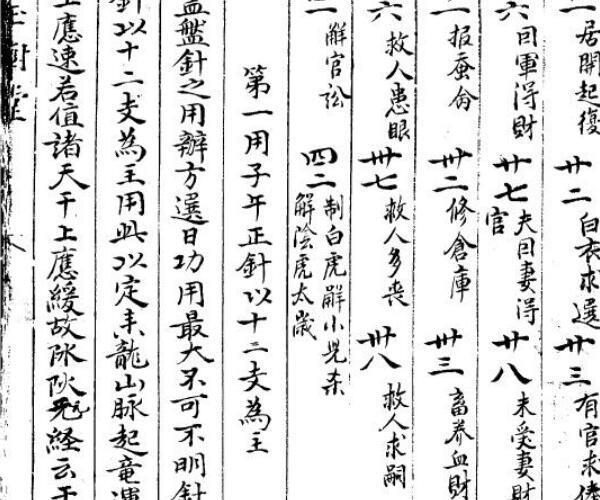 居閑起復 廿二 白衣求選 廿三 有官求
六 回軍得財 廿七 夫回妻得官 廿八 未受妻財
一 报蚕命 卅二 修倉庫 卅三 畜养血財
六 救人患眼 卅七 救人多丧 卅八 救人求嗣
解官訟 四二 制白虎解小児 解陰虎太歲
第一用子午正針以十二支為主
盤針之用辦方選日功用最大不可不明針
針以十二支為主用此以定来龍山脉起
上應速若值諸天干上應緩故 経云